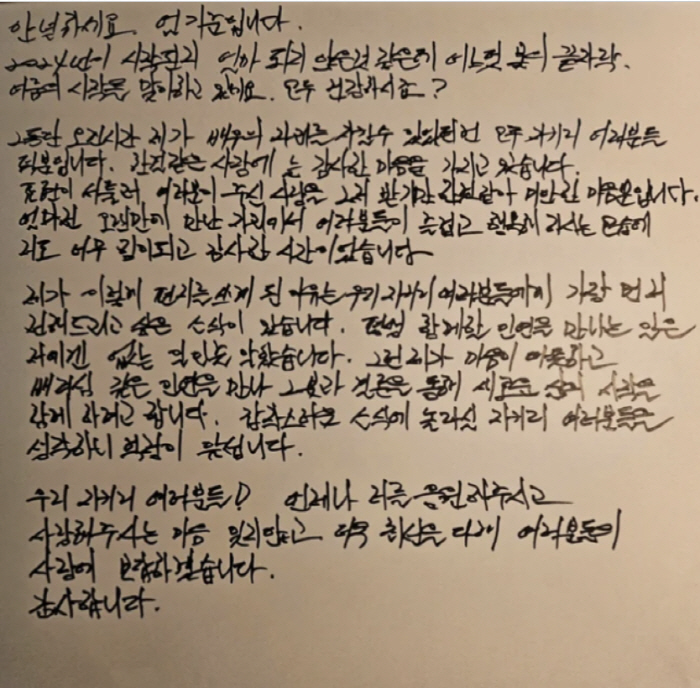 안녕하세요. 엄기준입니다.
2024년이 시작한지 얼마 되지 않은것 같은데 어느덧 끝자락.
마음의 시작을 맞이하고 있네요. 모두 건강하시죠?
그동안 오랜시간 제가 배우의 자리를 지킬수 있었던건 모두 자기리 여러분들
덕분입니다. 한결같은 사랑에 늘 감사한 마음을 가지고 있습니다.
표현이 서툴러 여러분이 주신 사랑을 그저 받기만 한것같아 미안한 마음뿐입니다.
얼마전 오랜만에 만난 자리에서 여러분들이 즐겁고 행복해 하시는 모습에
저도 너무 힘이되고 감사한 시간이었습니다
제가 이렇게 편지를 쓰게 된 이유는 우리 자기리 여러분들에게 가장 먼저
전해드리고 싶은 소식이 있습니다. 평생 함께할 인연을 만나는 일은
저에겐 없는 일인줄 알았습니다. 그런 제가 마음이 따뜻하고
배려심 깊은 인연을 만나 그녀와 결혼을 통해 새로운 삶의 시작을
함께 하려고 합니다. 갑작스러운 소식에 놀라실 자기리 여러분들을
생각하니 걱정이 앞섭니다.
우리 자기리 여러분들! 언제나 저를 응원해주시고
사랑해주시는 마음 잊지않고 더욱 최선을 다해 여러분들의
사랑에 보답하겠습니다.
감사합니다.